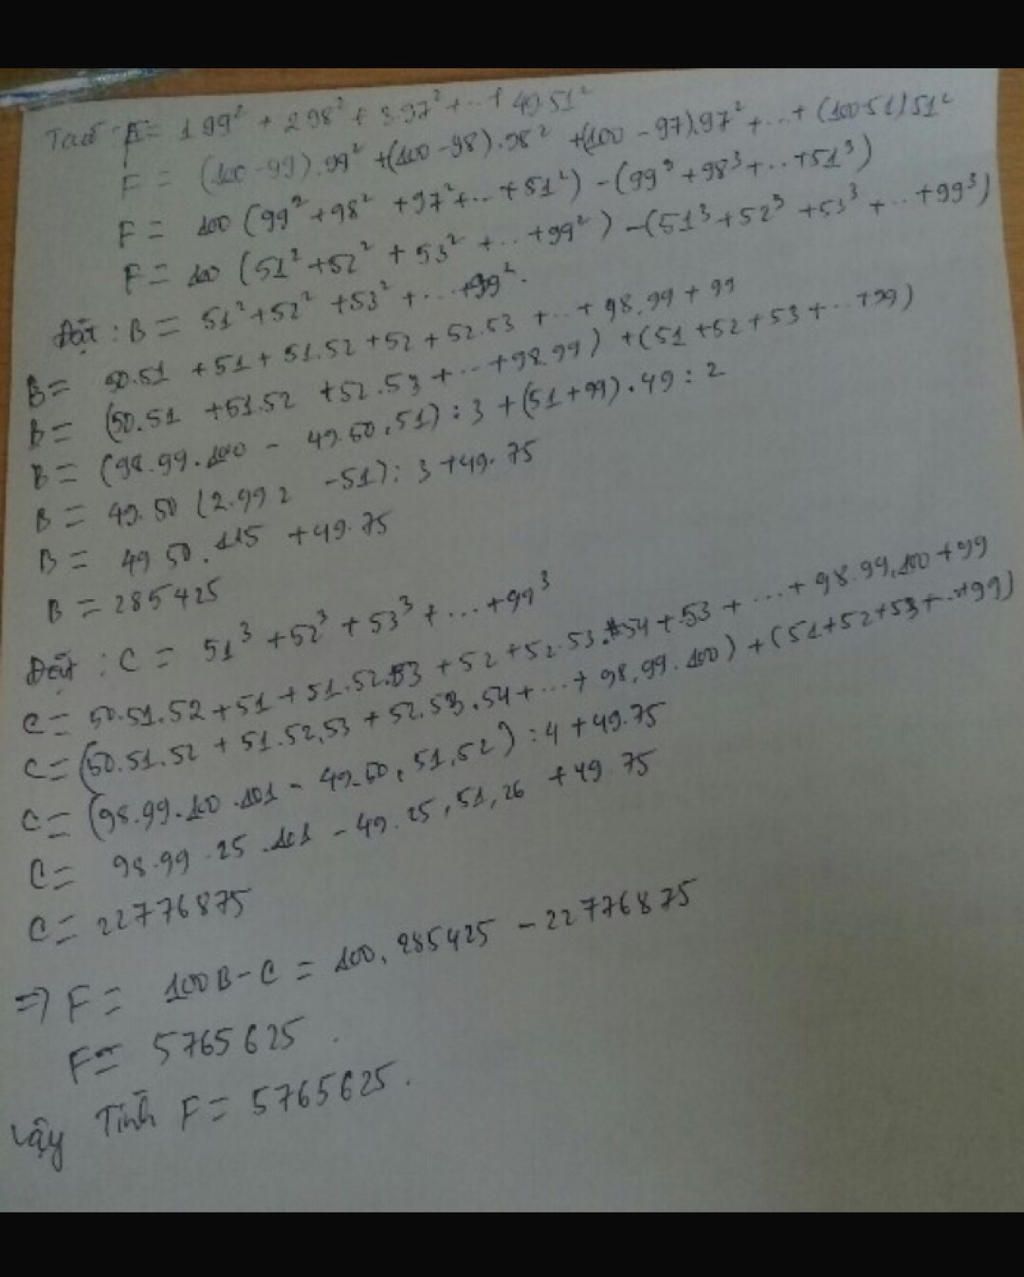 Ta có F = 1.99² + 2.98² + 3.97² + ... + 49.51²
F = (100-99).99² + (100-98).98² + (100-97).97² + ... + (100-51)51²
F = 100 (99² + 98² + 97² + ... + 51²) - (99³ + 98³ + ... + 51³)
F = 100 (51² + 52² + 53² + ... + 99²) - (51³ + 52³ + 53³ + ... + 99³)
Đặt : B = 51² + 52² + 53² + ... + 99².
B = 50.51 + 51 + 51.52 + 52 + 52.53 + ... + 98.99 + 99
B = (50.51 + 51.52 + 52.53 + ... + 98.99) + (51 + 52 + 53 + ... + 99)
B = (98.99.100 - 49.50.51) : 3 + (51 + 99).49 : 2
B = 49.50 (2.99.2 - 51) : 3 + 49.75
B = 49.50.115 + 49.75
B = 285425
Đặt : C = 51³ + 52³ + 53³ + ... + 99³
C = 50.51.52 + 51 + 51.52.53 + 52 + 52.53.54 + 53 + ... + 98.99.100 + 99
C = (50.51.52 + 51.52.53 + 52.53.54 + ... + 98.99.100) + (51 + 52 + 53 + ... + 99)
C = (98.99.100.101 - 49.50.51.52) : 4 + 49.75
C = 98.99.25.101 - 49.25.51.26 + 49.75
C = 22776875
=> F = 100B - C = 100.285425 - 22776875
F = 5765625.
Vậy Tính F = 5765625.